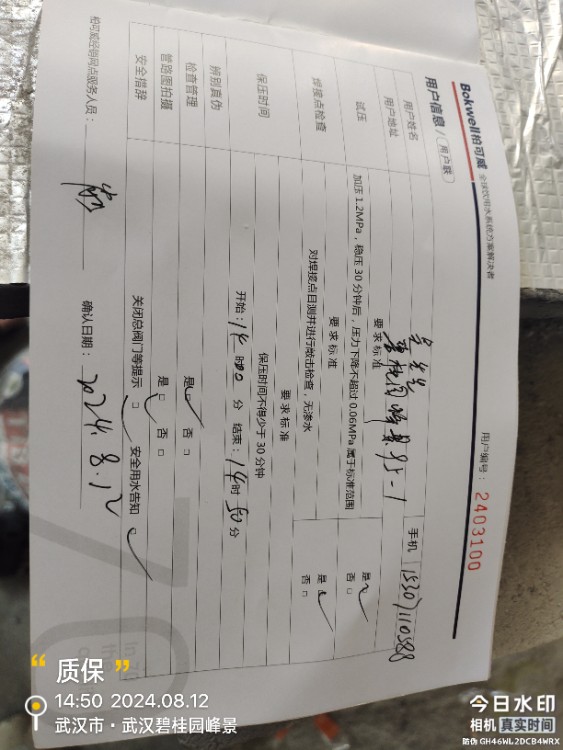 Bokwell柏可威 全球饮用水系统方案解决者
用户编号： 2403100
用户信息/ 用户联
用户姓名
手机 15307110588
用户地址 碧桂园峰景95-1
试压
要求标准
加压 1.2MPa，稳压 30 分钟后，压力下降不超过 0.06MPa 属于标准范围
是 否 □
焊接点检查
要求标准
对焊接点目测并进行敲击检查，无渗水
是 □ 否 □
保压时间
要求标准
保压时间不得少于 30 分钟
开始：14 时00 分 结束：14时50分
辨别真伪
是 □ 否 □
检查管理
是 □ 否 □
管路图拍摄
安全措辞
关闭总阀门等提示 □ 安全用水告知
柏可威经销网点服务人员：
确认日期： 2024. 8. 12
“ 质保 ”
14:50 2024.08.12
武汉市·武汉碧桂园峰景
今日水印
相机 真实时间
防伪 GH46WL2DCB4WRX